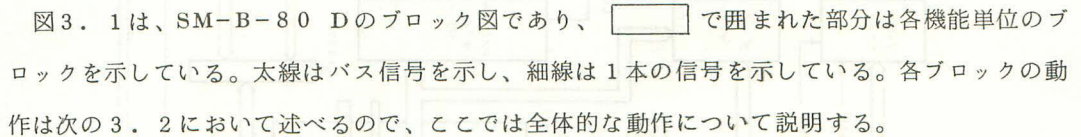 図3．1は、SM－B－80 Dのブロック図であり、 で囲まれた部分は各機能単位のブ
ロックを示している。太線はバス信号を示し、細線は1本の信号を示している。各ブロックの動
作は次の3．2において述べるので、ここでは全体的な動作について説明する。